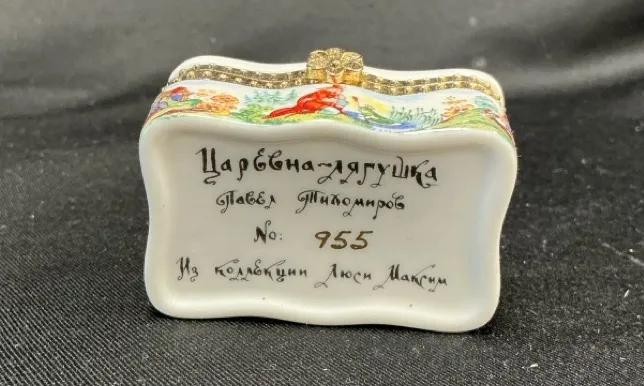 Царевна-лягушка
Павел Тихомиров
No: 955
Из коллекции Люси Максим